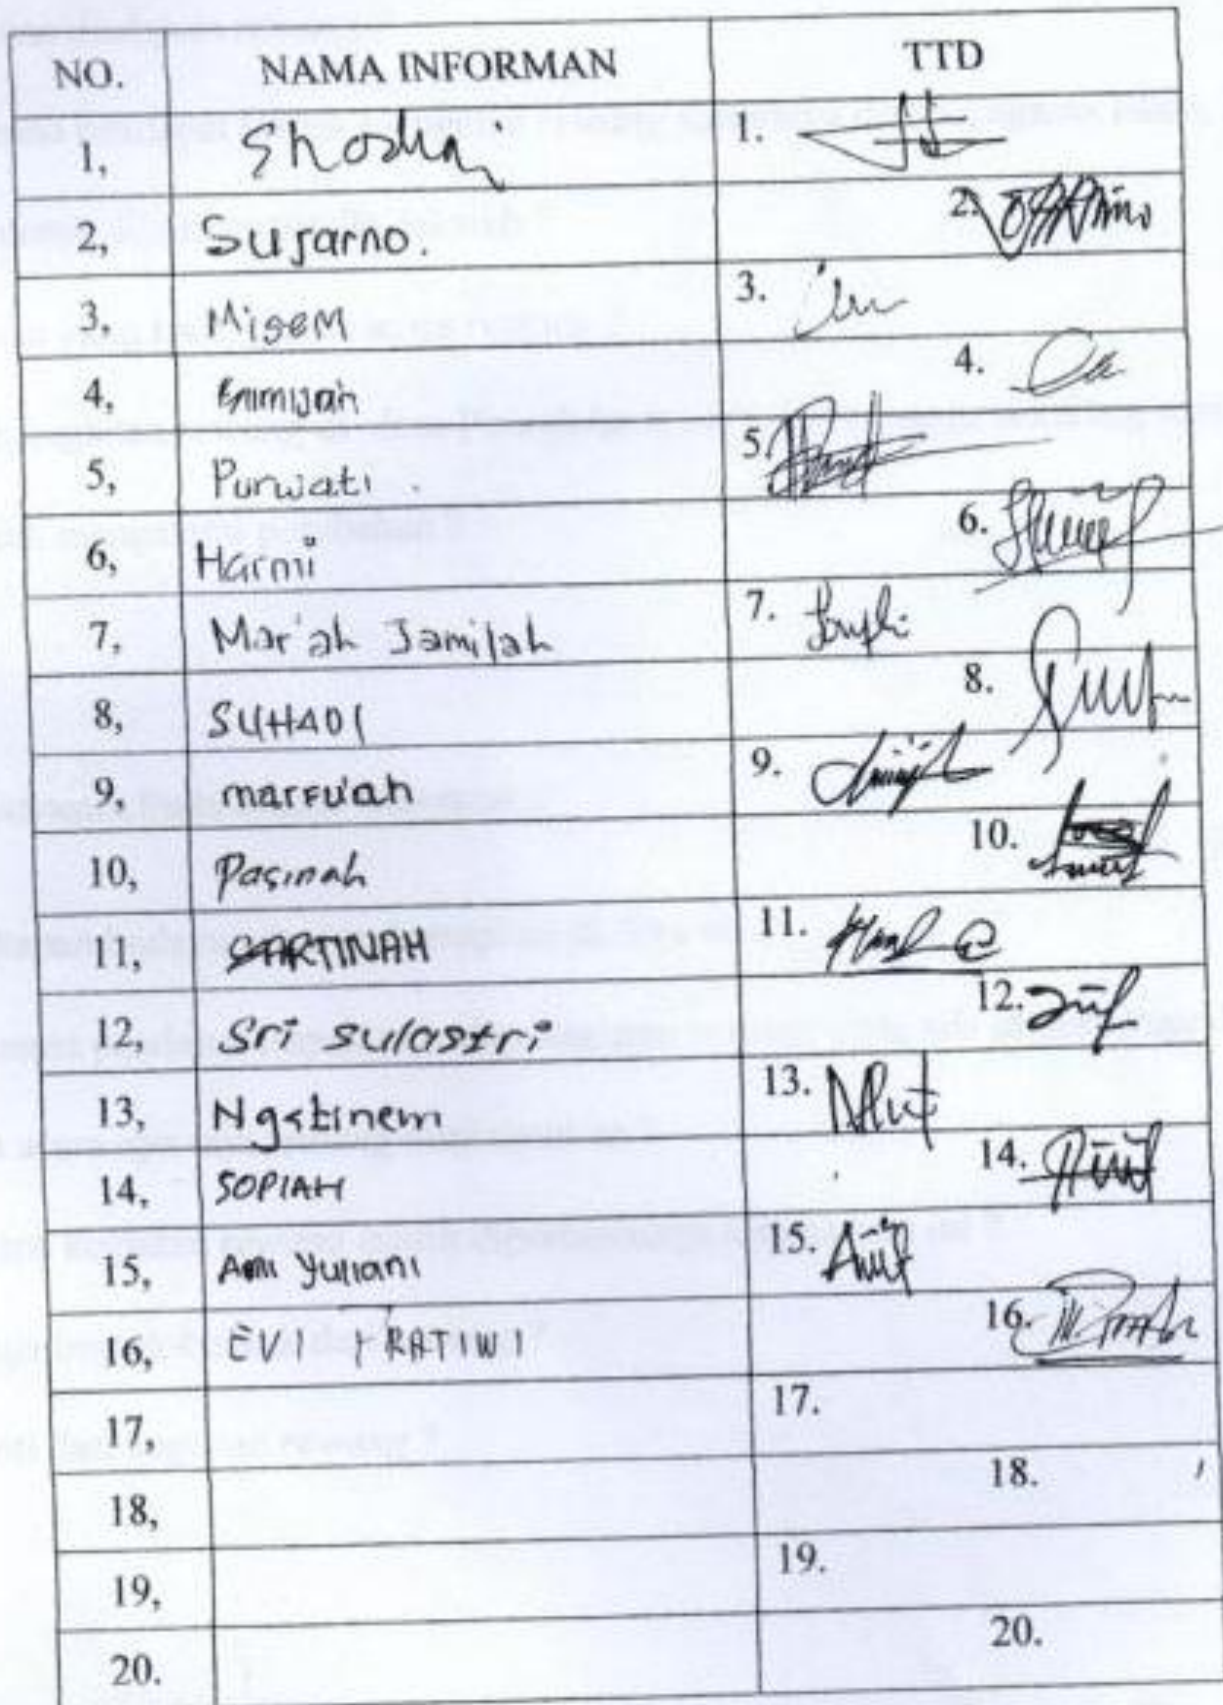 NO. NAMA INFORMAN TTD
1, Shodiq 1.
2, Sujarno. 2.
3, Misem 3.
4, 4.
5, Purwati. 5.
6, Harmi 6.
7, Mar'ah Jamilah 7.
8, SUHADI 8.
9, marfu'ah 9.
10, Pasinah 10.
11, SARTINAH 11.
12, Sri sulastri 12.
13, Ngatinem 13.
14, SOPIAH 14.
15, Ami Yuliani 15.
16, EVI PRATIWI 16.
17, 17.
18, 18.
19, 19.
20. 20.